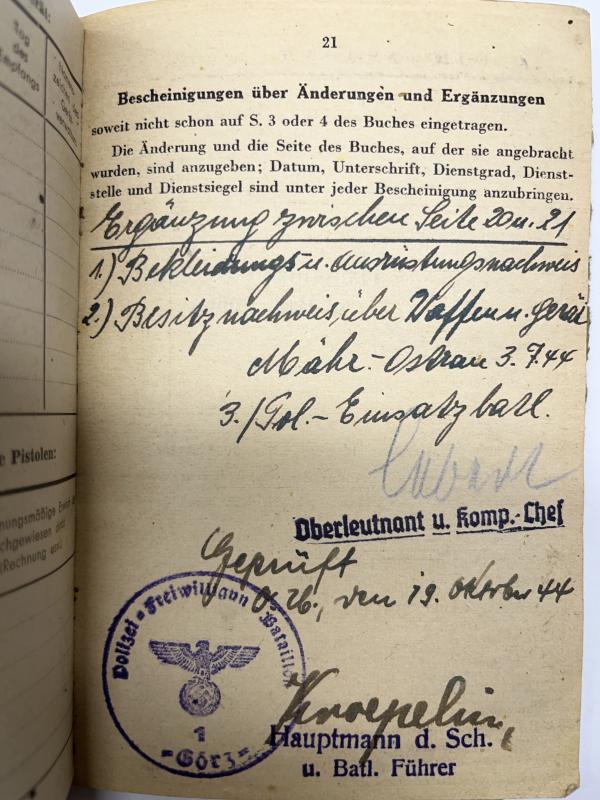 21
Bescheinigungen über Änderungen und Ergänzungen
soweit nicht schon auf S. 3 oder 4 des Buches eingetragen.
Die Änderung und die Seite des Buches, auf der sie angebracht
wurden, sind anzugeben; Datum, Unterschrift, Dienstgrad, Dienst-
stelle und Dienstsiegel sind unter jeder Bescheinigung anzubringen.
Ergänzung zwischen Seite 20 u. 21
1.) Bekleidungs u. Ausrüstungsnachweis
2.) Besitznachweis über Waffen u. Gerät
Mähr.-Ostrau 3.7.44
3./Pol.-Einsatzbatl.
Oberleutnant u. Komp.-Chef
Geprüft
O. U., den 19. Oktober 44
Polizei-Freiwilligen Bataillon
1
-Görz-
Kroepelin,
Hauptmann d. Sch.
u. Batl. Führer
Tag
des
Empfangs
e Pistolen: